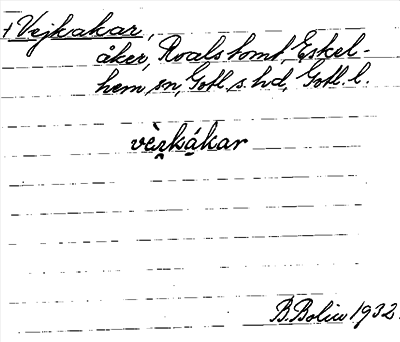 + Vejkakar,
åker, Roalstomt, Eskel-
hem, sn, Gotl. s. hd, Gotl. l.
B. Bolin 1932.